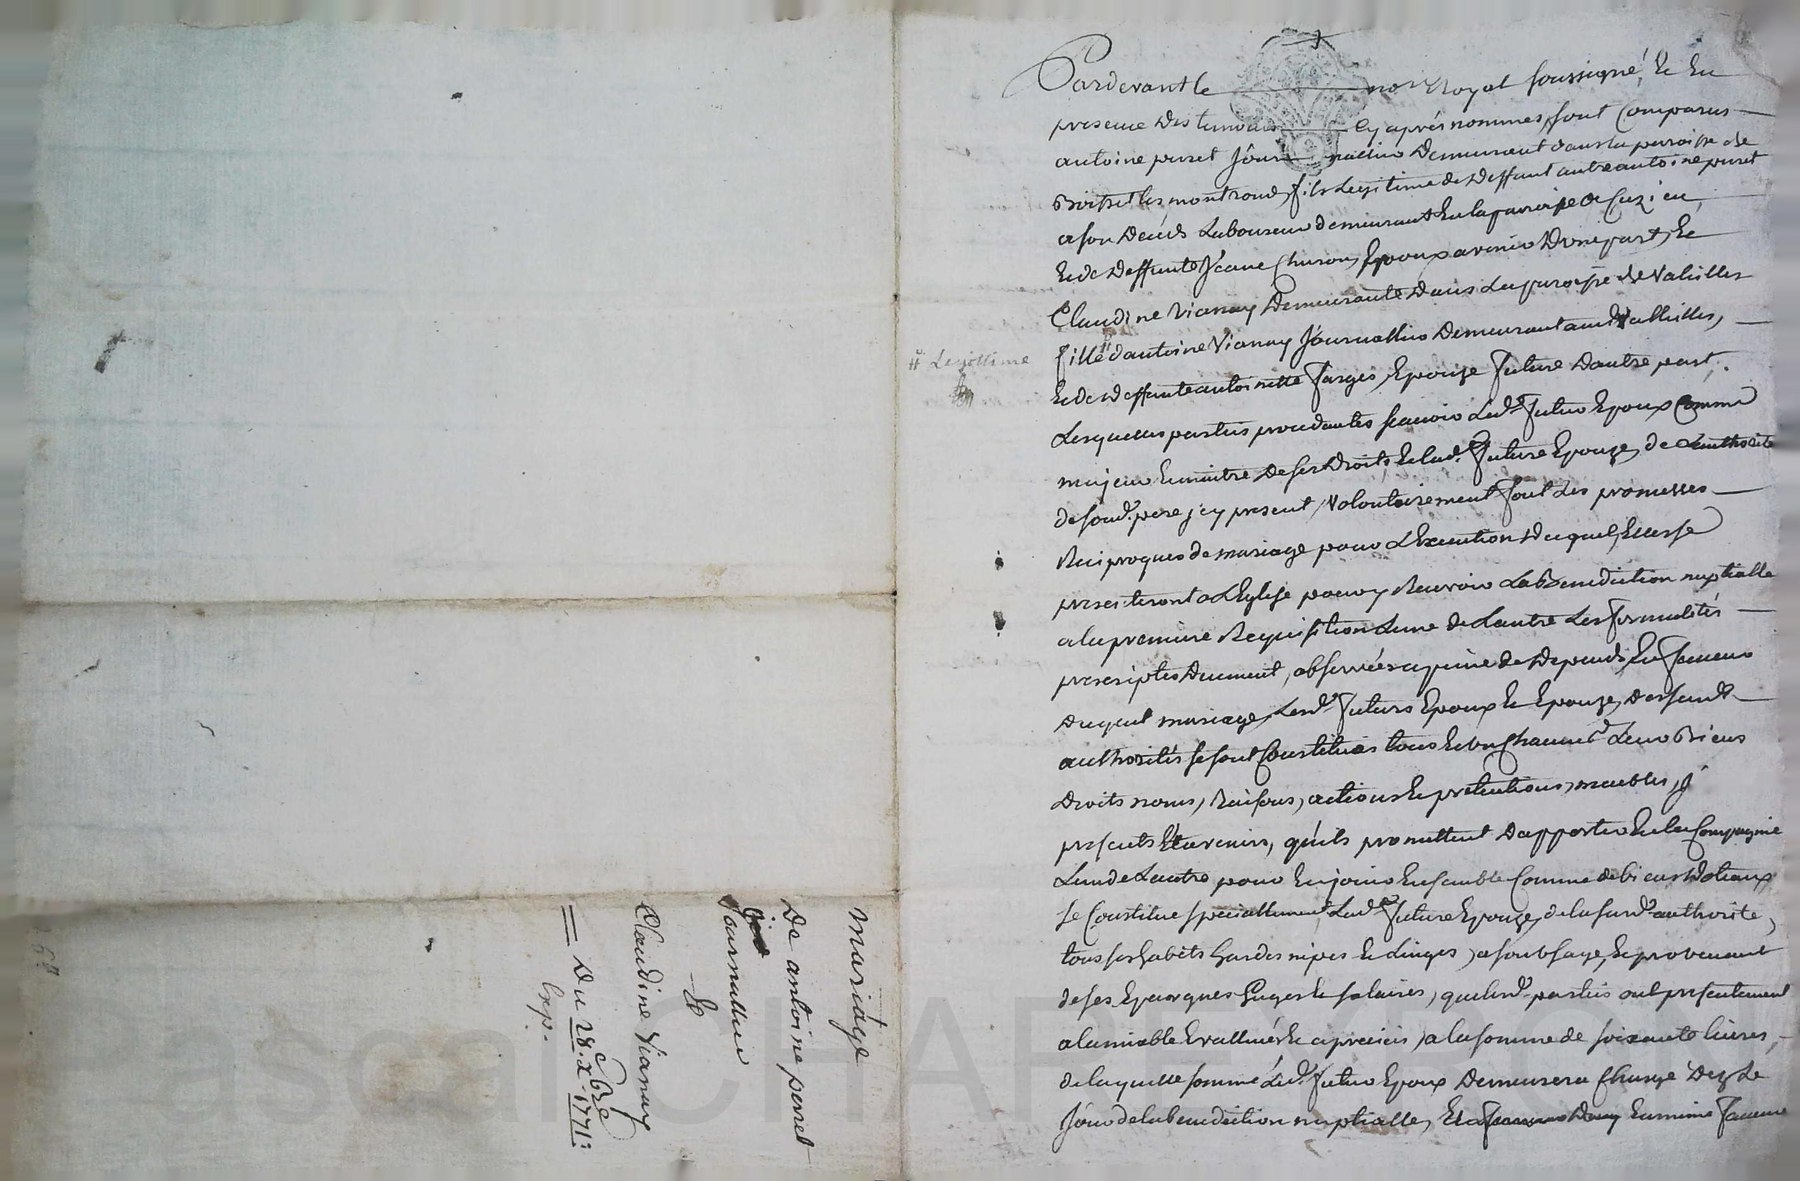 Pardevant le no.re Royal soussigné, Et En
presence des temoins cy aprés nommés, sont Comparus
antoine perret Journallier Demeurant dans la parroisse de
Boisset les montrond, fils Legitime de deffunt autre antoine perret
a son Décés Laboureur demeurant En la parroisse de Cuzieu,
Et de deffunte Jeane Churon, Epoux avenir D'une part, Et
Claudine Vianay Demeurante Dans La paroisse de Valeilles
fille # d'antoine Vianay Journallier Demeurant aud. Valleilles,
# Legittime
Et de deffunte antoinette Farges, Epouze future D'autre part.
Lesquelles parties procedantes scavoir Led. futur Epoux Comme
majeur Et maitre de ses Droits, Et lad. future Epouze, de L'authorité
de sond. pere icy present, Volontairement font Les promesses
Reciproques de mariage pour L'Execution Duquel, Elles se
presenteront a L'Eglise pour y Recevoir La Benediction nuptialle
a la premiere Requisition L'une de L'autre Les formalités
prescriptes Duement, observées a peine de Depends, En faveur
Duquel mariage, Lesd. futurs Epoux Et Epouze, des susd.
authorités se sont Constitués tous Et un Chacuns Leur Biens
Droits noms, Raisons, actions Et prétentions, meubles,
presents Et avenirs, qu'ils promettent D'apporter En la Compagnie
L'un de L'autre pour En jouir Ensemble Comme de biens Dotaux
se Constitue specialement Lad. future Epouze, de la susd. authorité,
tous ses habits hardes nipes Et Linges, a son Usage, Et provenant
de ses Eparques Gages Et salaires, que lesd. parties ont presentement
a l'amiable Evallués Et apreciés, a la somme de soixante livres,
de laquelle somme Led. futur Epoux Demeurera Chargé Dez Le
Jour de la benediction nuptialle, Et En même faveur
mariage
De antoine perret
Journallier
Et
Claudine Vianay
Du 28. Xbre 1771:
Exp.
Pascal CHARTRON